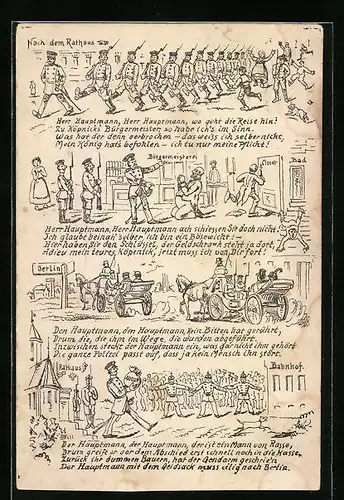 Nach dem Rathaus
Herr Hauptmann, Herr Hauptmann, wo geht die Reise hin?
Zu Köpnicks Bürgermeister, so habe ich's im Sinn.
Was hat der denn verbrochen – das weiss ich selber nicht,
Mein König hats befohlen – ich tu nur meine Pflicht!
Bürgermeisterei
Closet
Bad
Herr Hauptmann, Herr Hauptmann ach schiessen Sie doch nicht,
Ich glaube beinah' selber ich bin ein Bösewicht! –
Hier haben Sie den Schlüssel, der Geldschrank steht ja dort,
Adieu mein teures Köpenick, jetzt muss ich von Dir fort!
Berlin
Den Hauptmann, den Hauptmann, kein Bitten hat gerührt,
Drum die, die ihm im Wege, die wurden abgeführt.
Inzwischen steckt der Hauptmann ein, was gar nicht ihm gehört
Die ganze Polizei passt auf, dass ja kein Mensch ihn stört.
Rathaus
Bahnhof.
Der Hauptmann, der Hauptmann, der ist ein Mann von Rasse,
Drum greift er vor dem Abschied erst schnell noch in die Kasse,
Zurück ihr dummen Bauern, hat der Gendarm geschrie'n
Der Hauptmann mit dem Geldsack muss eilig nach Berlin.